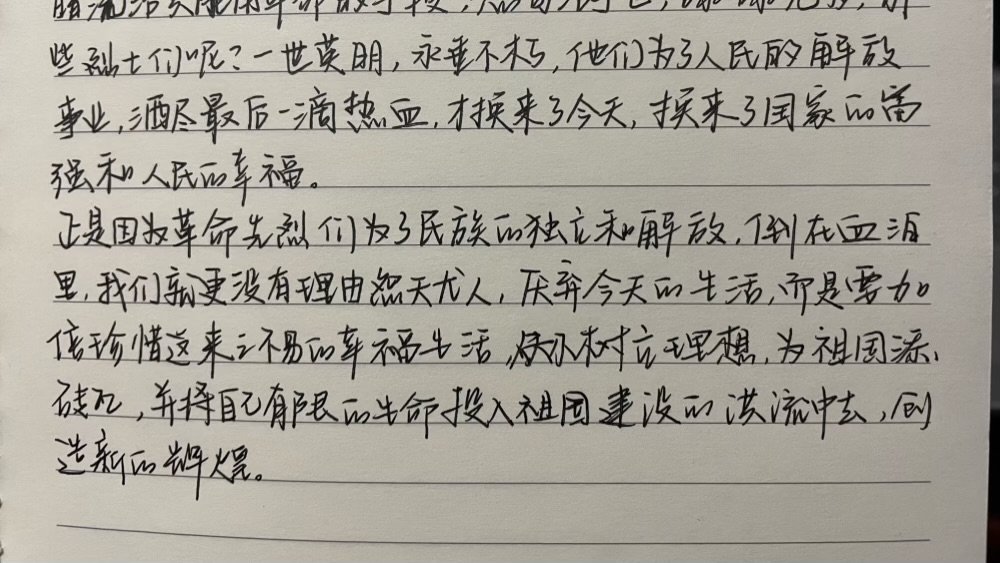 些烈士们呢?一世英明,永垂不朽,他们为了人民的解放
事业,洒尽最后一滴热血,才换来了今天,换来了国家的富
强和人民的幸福。
正是因为革命先烈们为了民族的独立和解放,倒在血泊
里,我们就更没有理由怨天尤人,厌弃今天的生活,而是要加
倍珍惜这来之不易的幸福生活,树立理想,为祖国添
砖瓦,并将自己有限的生命投入祖国建设的洪流中去,创
造新的辉煌。